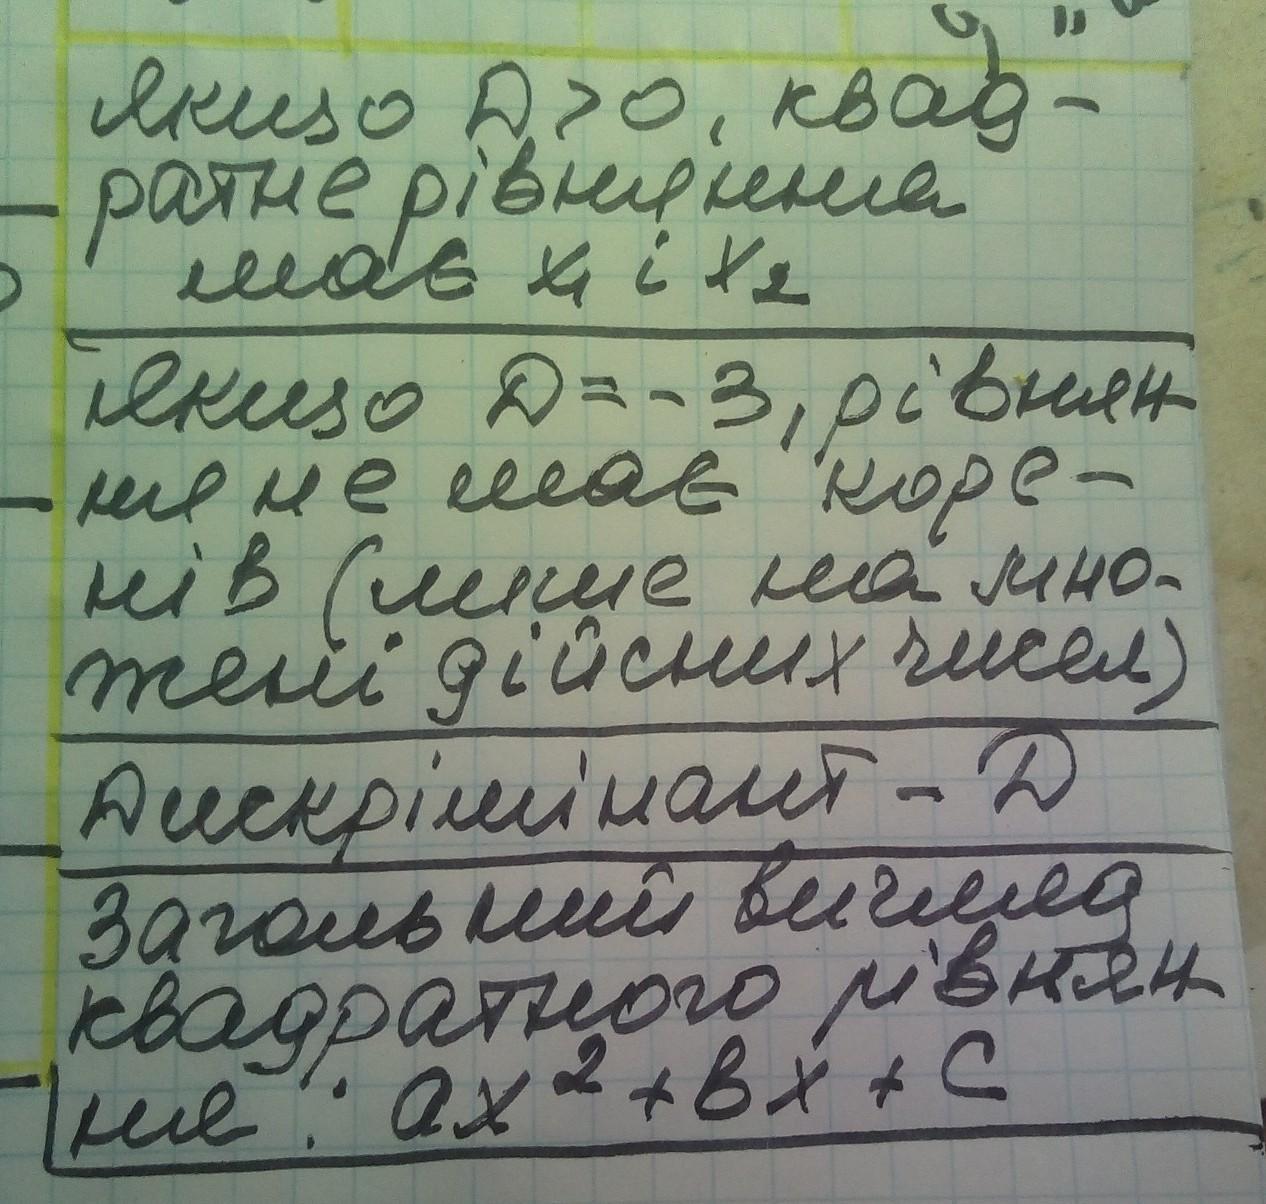 Якщо D > 0, квад-
ратне рівняння
має x₁ і x₂
Якщо D = - 3, рівнян
ня не має коре-
нів (лише на мно-
жені дійсних чисел)
Дискрімінант - D
Загольний вигляд
квадратного рівнян
ня : ax² + вx + c